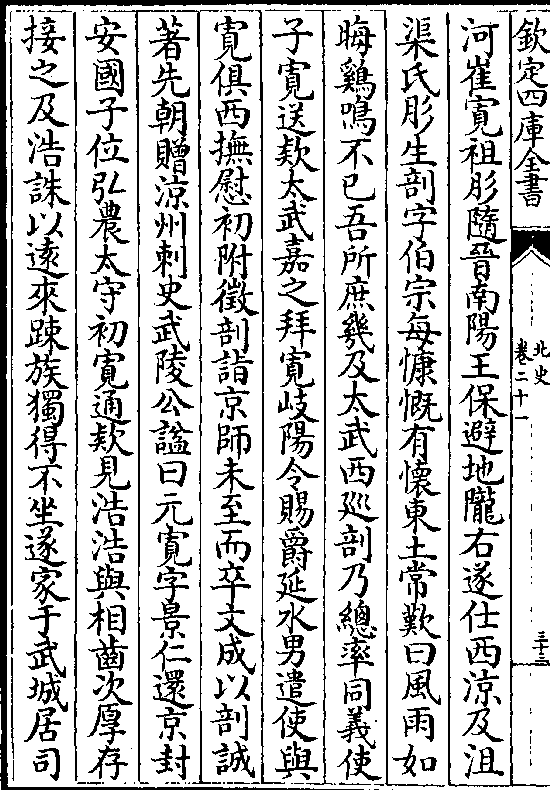 欽定四庫全書
北史
卷二十一
三十三
河崔寛祖肜隨晉南陽王保避地隴右遂仕西涼及沮
渠氏肜生剖字伯宗每慷慨有懷東土常歎曰風雨如
晦鷄鳴不已吾所庶幾及太武西廵剖乃總率同義使
子寛送欵太武嘉之拜寛岐陽令賜爵延水男遣使與
寛俱西撫慰初附徵剖詣京師未至而卒文成以剖誠
著先朝贈涼州刺史武陵公諡曰元寛字景仁還京封
安國子位弘農太守初寛通欵見浩浩與相齒次厚存
接之及浩誅以逺來踈族獨得不坐遂家于武城居司